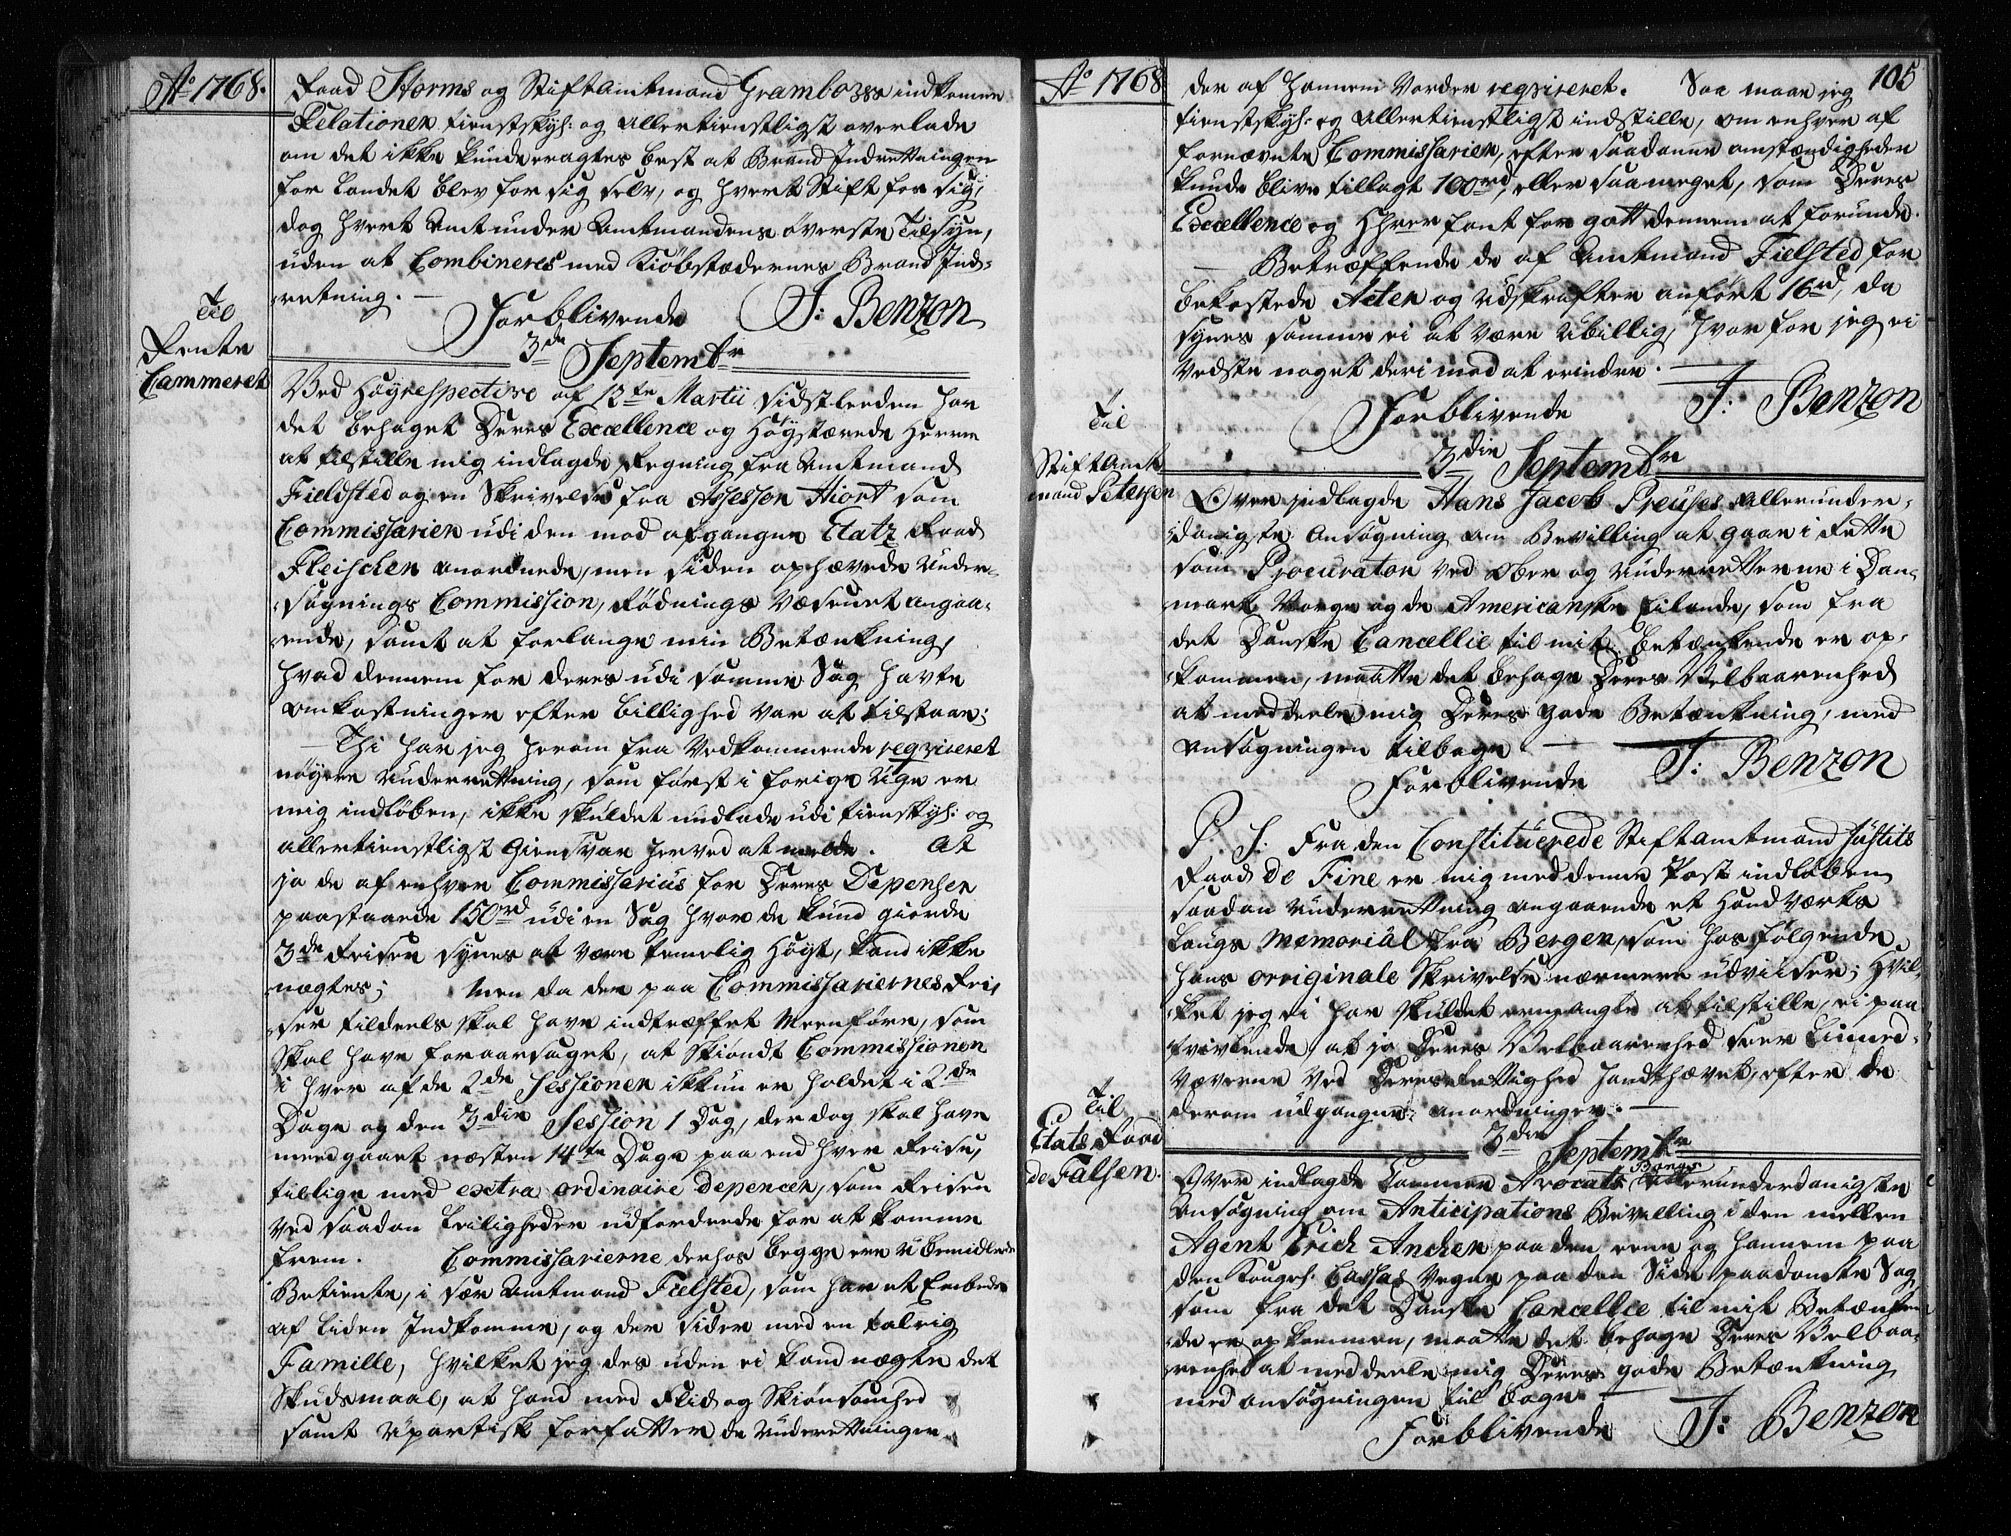 Ao 1768.
Raad Storms og Stiftamtmand Grambows indkomne
Relationer tienstskyl: og allertienstligst overlade
om det ikke kunde eragtes best at Brand Indretningen
for Landet blev for sig selv, og hvert Stift for sig,
dog hvert Amt under Amtmandens øverste Tilsyn,
uden at Combineres med Kiøbstædernes Brand Ind-
retning.
Forblivende J: Benzon
Til
Rente
Cammeret
3de Septembr
Ved Høyrespective af 12te Martii sidstleeden har
det behaget Deres Excellence og Høystærede Herrer
at tilstille mig indlagde Regning fra Amtmand
Fieldsted og en Skrivelse fra Assessor Hiort som
Commissarier udi den mod afgangne Etatz Raad
Fleischer anordnede, men siden ophævede Under-
søgnings Commission, Rødnings Væsenet angaa-
ende, samt at forlange min Betænkning,
hvad dennem for deres udi samme Sag havte
omkostninger efter billighed var at tilstaae;
Thi har jeg herom fra Vedkommende reqvireret
nøyere Underretning, som først i forige Uge er
mig indløben, ikke skuldet undlade udi tienstskyl: og
allertienstligst Giensvar herved at melde. At
jo de af enhver Commissarius for Deres Depenser
paastaaede 150rd udi en Sag hvor de kund giorde
3de Reiser synes at være temelig Høyt, kand ikke
nægtes; Men da der paa Commissariernes Rei-
ser tildeels skal have indtræffet Meenføre, som
skal have foraarsaget, at skiøndt Commissionen
i hver af de 2de Sessioner ikkun er holdet i 2de
Dage og den 3die Session 1 Dag, der dog skal have
meedgaaet næsten 14te Dage paa end hver Reise,
tillige med extra ordinaire depencer, som Reisen
ved saadan Leiligheder udfordrede for at komme
frem. Commissarierne derhos begge ere ubemidlede
Betiente, i sær Amtmand Fielsted, som har et Embede
af liden Indkomme, og der sider med en talrig
Famille, hvilket jeg des uden ei kand nægte det
Skudsmaal, at hand med Flid og Skiønsomhed
samt upartisk forfatter de Underretninger
Ao 1768
105
der af hannem Vorder reqvireret. Saa maae jeg
tienstskyl: og allertienstligst indstille, om enhver af
fornævnte Commissarier, efter saadanne omstændigheder
kunde blive tillagt 100rd, eller saa meget, som Deres
Excellence og Hhrer fant for gott dennem at forunde.
Betræffende de af Amtmand Fielsted for
bekostede Acter og udskrifter anført 16rd, da
synes samme ei at være ubillig, hvorfor jeg ei
vedste noget derimod at erindre.
Forblivende J: Benzon
Til
Stiftamt
mand Petersen
3die Septembr
Over indlagde Hans Jacob Preuses Allerunder-
danigste Ansøgning om Bevilling at gaae i Rette
som Procurator ved Ober og Underretterne i Dan-
mark Norge og de Americanske Eilande, som fra
det Danske Cancellie til mit betænkende er op-
kommen, maatte det behage Deres Velbaarenhed
at meddeele mig Deres gode Betænkning, med
Ansøgningen tilbage
Forblivende J: Benzon
P. S. Fra den Constituerede Stiftamtmand Justits
Raad de Fine er mig med denne Post indløben
saadan Underretning angaaende et Handværks
Laugs Memorial fra Bergen, som hosfølgende
hans orriginale Skrivelse nærmere udviiser; Hvil-
ket jeg ei har skuldet ermangle at tilstille, ei paa
tvivlende at jo Deres Velbaarenhed seer Linned-
væverne ved Deres Rettighed handthævet, efter de
derom udgangne anordninger.
Til
Etats Raad
de Falsen.
3die Septembr
Over indlagde Cammer Avocats Bangs allerunderdanigste
Ansøgning om Anticipations Bevilling i den mellem
Agent Erich Ancher paa den eene og hannem paa
den Kongel: Cassas Vegne paa den Side paadømte Sag
som fra det Danske Cancellie til mit Betænken-
de er opkommen, maatte det behage Deres Velbaa-
renhed at meddeele mig Deres gode Betænkning
med ansøgningen til bage
Forblivende J: Benzon